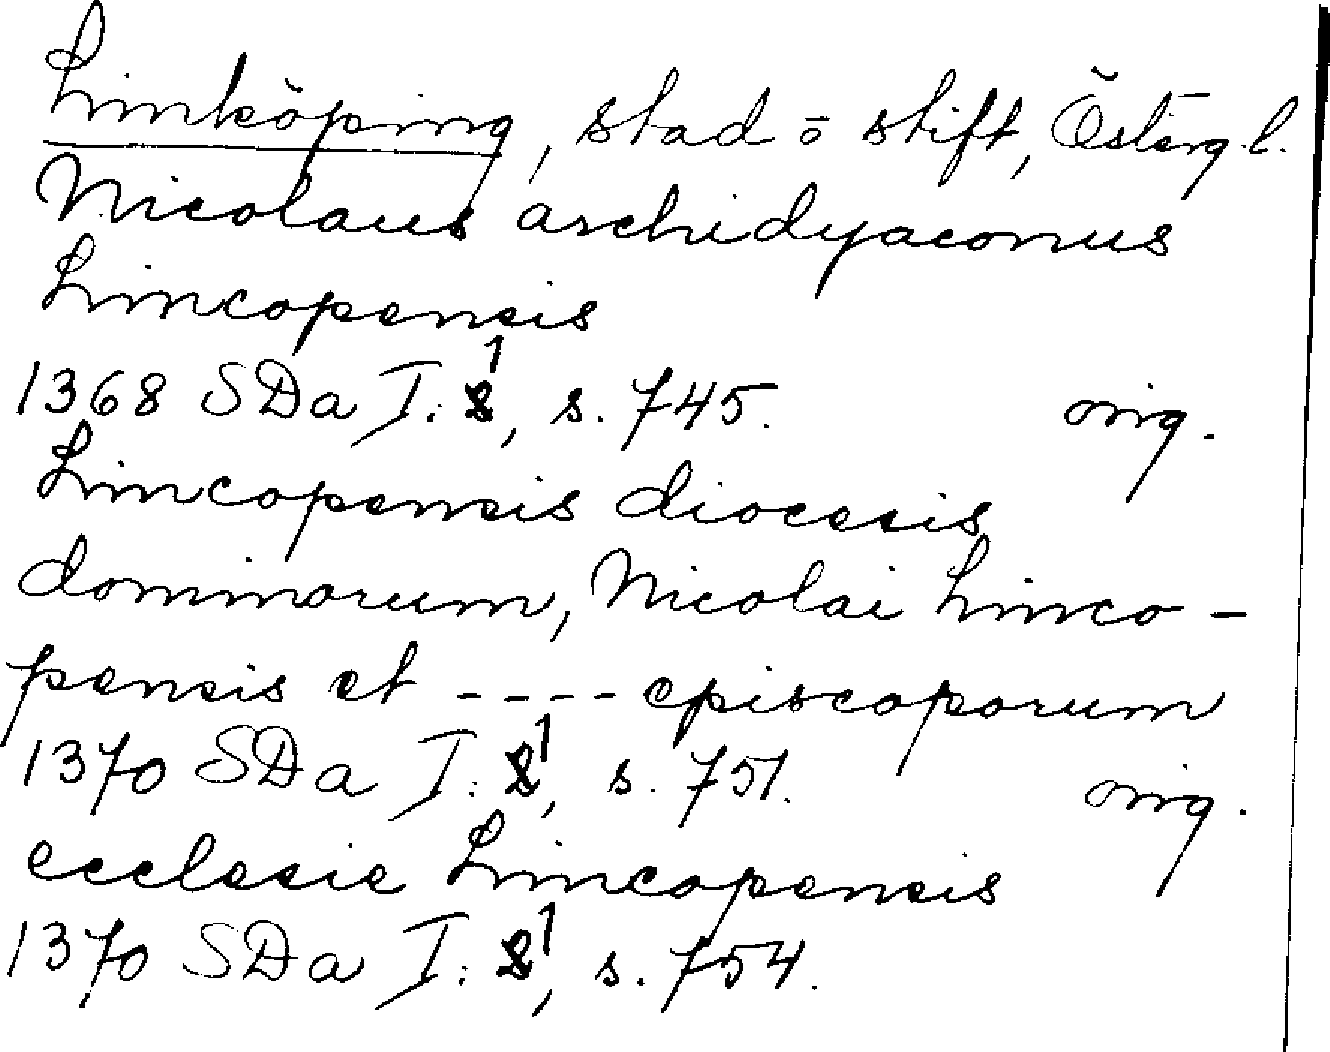 Linköping, stad o stift, Östergl.
Nicolaus archidyaconus
Lincopensis
1368 SDa I: 1, s. 745. orig.
Lincopensis diocesis
dominorum, Nicolai Linco-
pensis et ---- episcoporum
1370 SDa I: 1, s. 751. orig.
ecclesie Lincopensis
1370 SDa I: 1, s. 754.